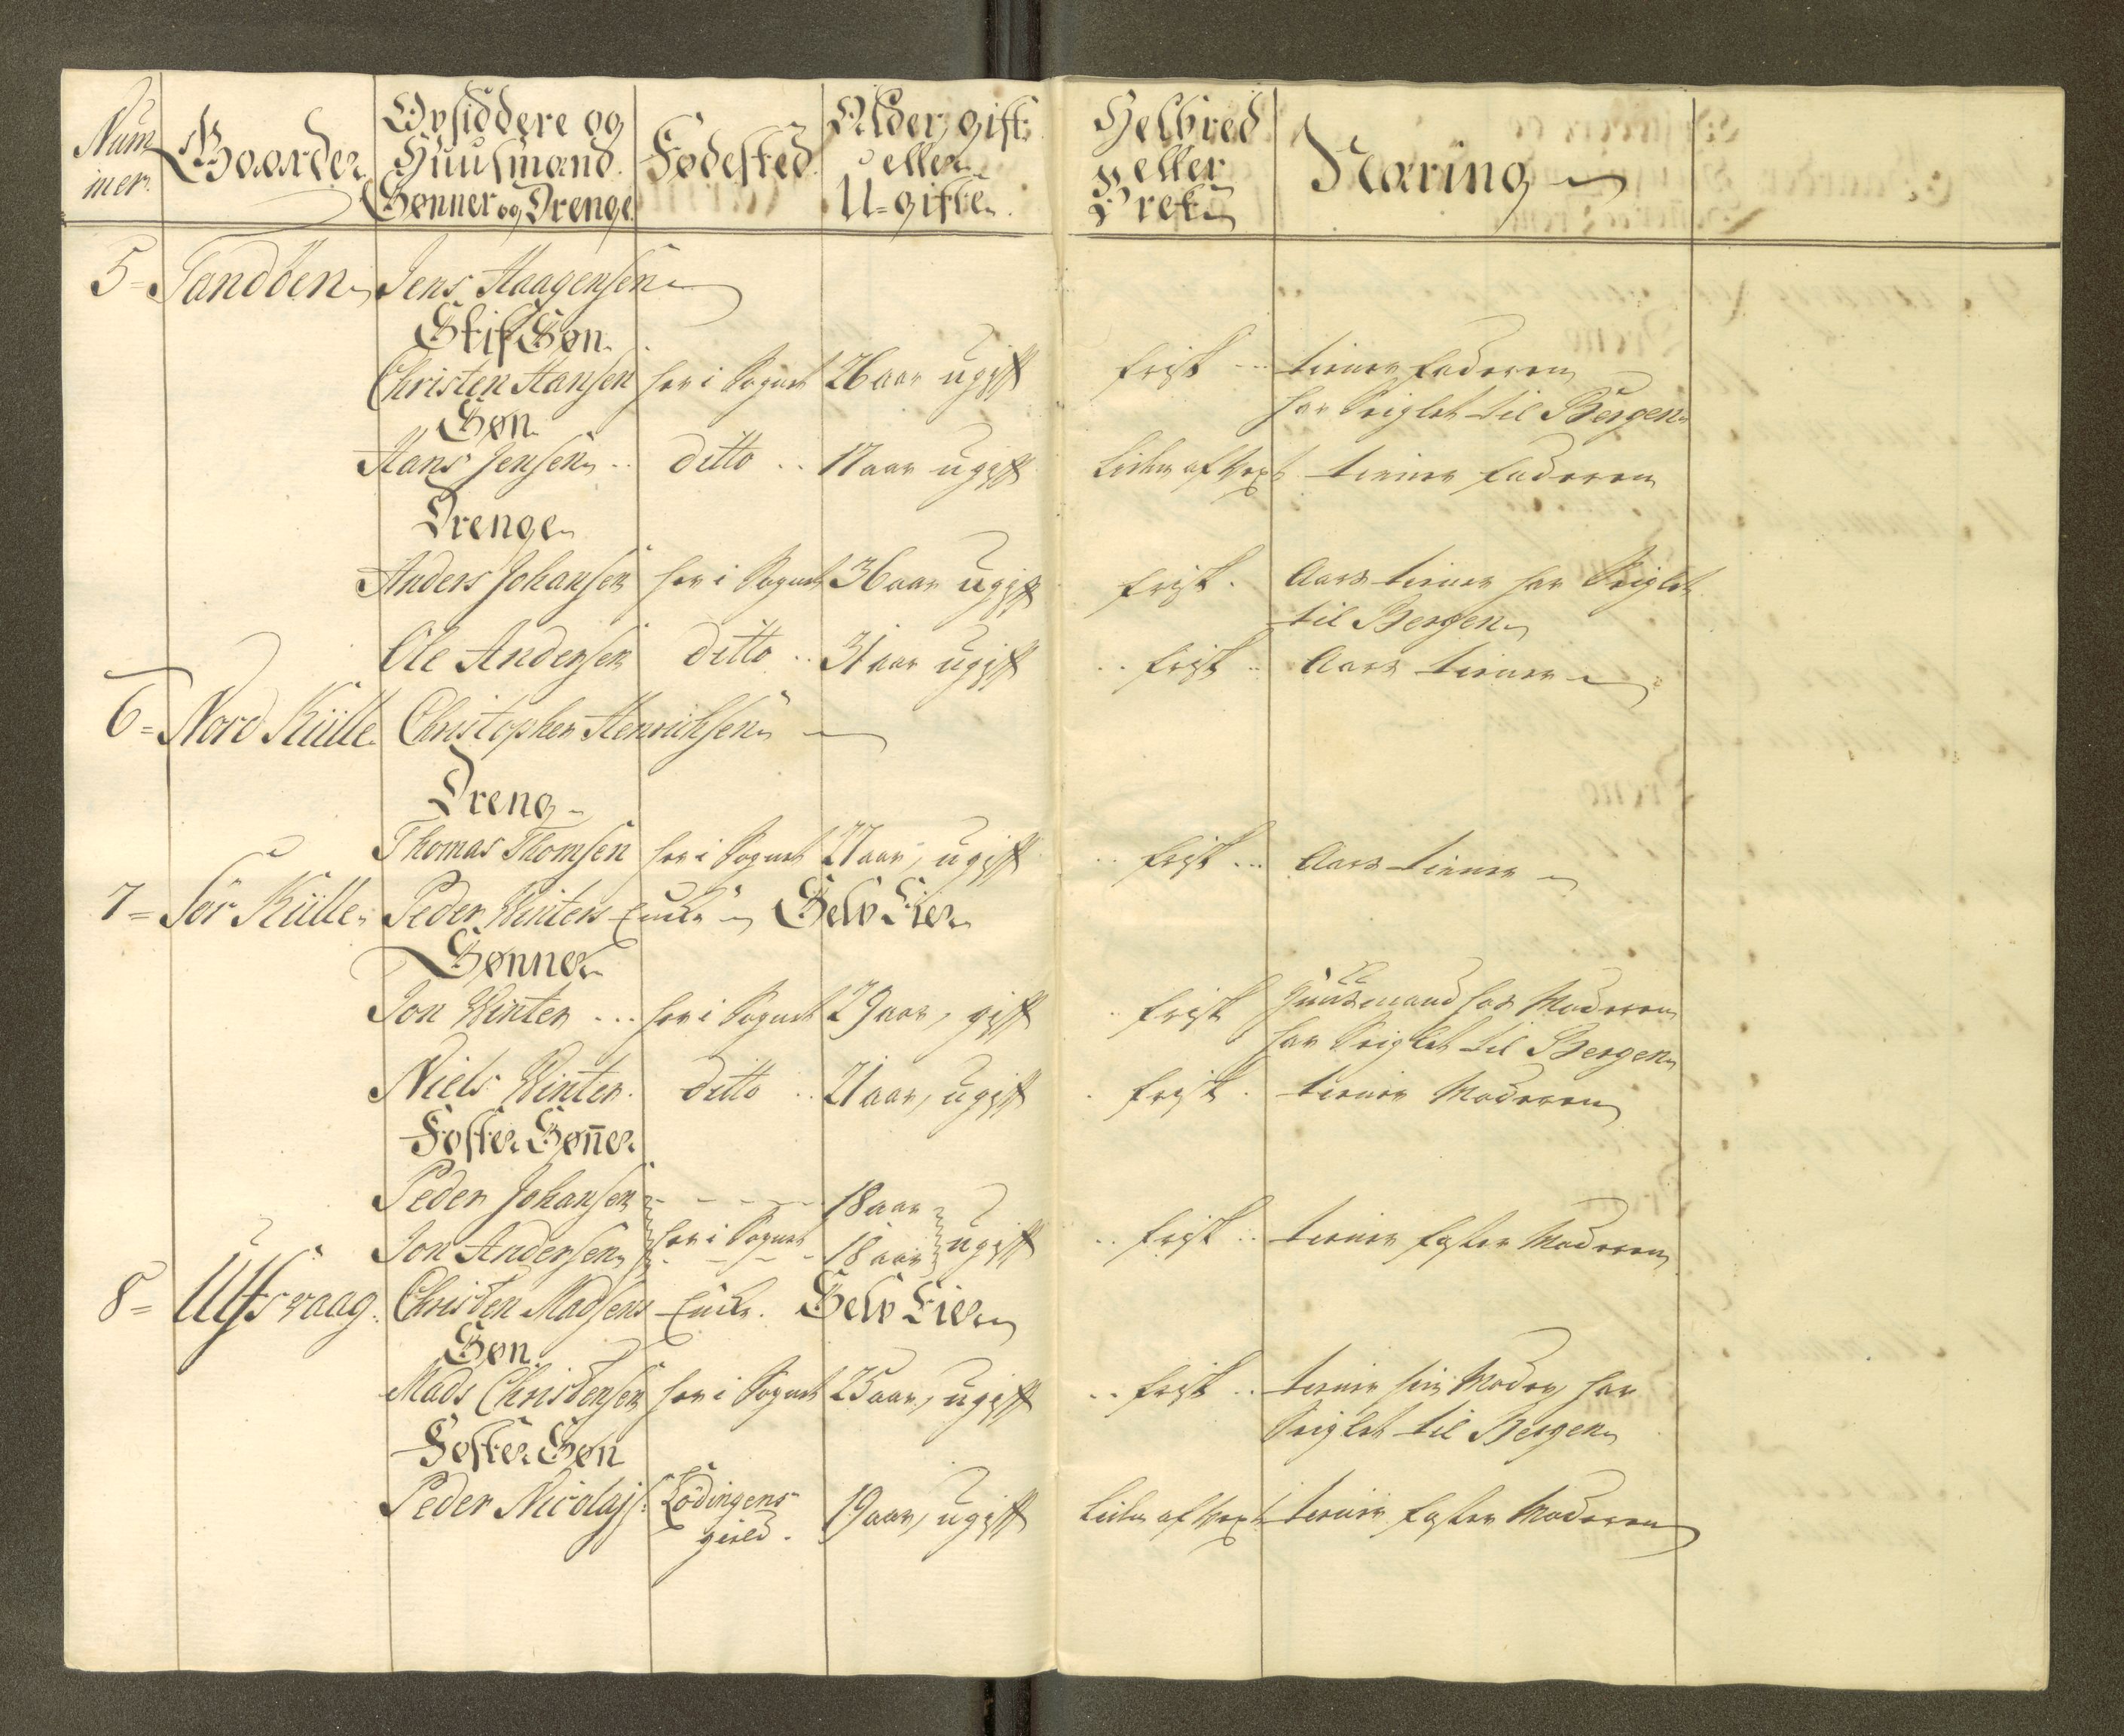 Num
mer.
Gaarder
Opsiddere og
Huusmænd
Sønner og Drenge
Fødested
Alder, gift
eller
U=gifte
Helbred
eller
Bræk
Næring
5 = Sandöen Jens Haagensen
Stif Søn
Christen Hansen her i Sognet 26 aar ugift frisk tiener Faderen
har Seiglet til Bergen
Søn
Hans Jensen ditto 17 aar ugift Liden af Vext tiener Faderen
Drenge
Anders Johansen her i Sognet 36 aar ugift frisk Aars tiener har Seiglet
til Bergen
Ole Andersen ditto 31 aar ugift frisk Aars tiener
6 = Nord Külle Christopher Henrichsen
Dreng
Thomas Thomsen her i Sognet 27 aar, ugift frisk Aars tiener
7 = Sör Külle Peder Winters Encke Selv Eier
Sønner
Jon Winter her i Sognet 29 aar, gift frisk Huusmand hos Moderen
har Seiglet til Bergen
Niels Winter ditto 21 aar, ugift frisk tiener Moderen
Foster Søn̄er
Peder Johansen - - - - 18 aar
Jon Andersen her i Sognet 18 aar ugift frisk tiener foster Moderen
8 = Ulfsvaag Christen Madsens Encke Selv Eier
Søn
Mads Christensen her i Sognet 25 aar, ugift frisk tiener sin Moder, har
Seiglet til Bergen
Foster Søn
Peder Nicolajs: Lödingens 19 aar, ugift Liden af Vext tiener foster Moderen
gield